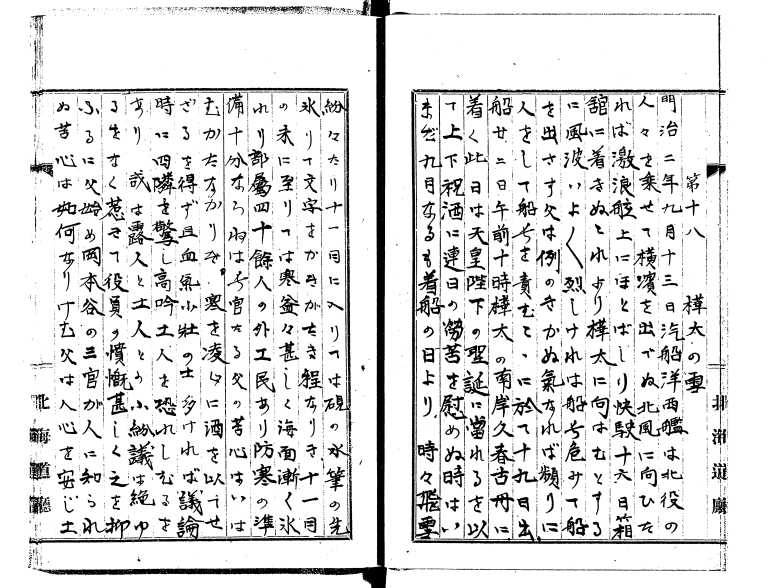 第十八　樺太の雪
明治二年九月十三日汽船洋西艦は北役の
人々を乗せて横濱を出でぬ北風に向ひた
れば激浪舷上にほとばしり快駛十六日箱
舘に着きぬこれより樺太に向はむとする
に風波いよ〱烈しけれは船号危みて船
を出さす父は例のきかぬ氣なれば頻りに
人をして船号を責むこゝに於て十九日出
船廿二日午前十時樺太の南岸久春古丹に
着く此日は天皇陛下の聖誕に當れるを以
て上下祝酒に連日の勞苦を慰めぬ時はい
まだ九月なるも着船の日より、時々飛雪
紛々たり十一月に入りては硯の水筆の先
氷りて文字をかきがたき程なりき十一月
の末に至りては寒益々甚しく海面漸く氷
れり部屬四十餘人の外工民あり防寒の準
備十分ならねは長官たる父の苦心はいは
むかたなかりき、寒を凌ぐに酒を以てせ
ざるを得ず且血氣小壯の士多ければ議論
時に四隣を驚し高吟土人を恐れしむるを
あり或は露人と土人との小紛議は絶ゆ
るまなく惹きて役員の憤慨甚しく之を抑
ふるに父始め岡本谷の三官が人に知られ
ぬ苦心は如何なりけむ父は人心を安じ土
北海道廳
北海道廳